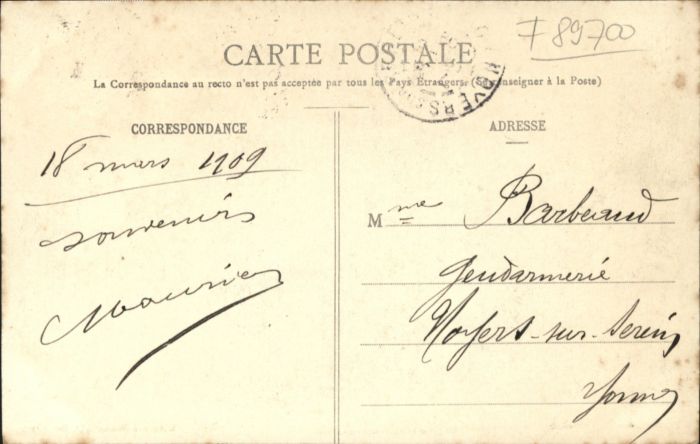 F 89700
CARTE POSTALE
La Correspondance au recto n'est pas acceptée par tous les Pays Étrangers. (Se renseigner à la Poste)
CORRESPONDANCE
18 mars 1909
souvenirs
Maurice
ADRESSE
Mme Barbeaud
Gendarmerie
Noyers-sur-Serein
Yonne
NOYERS